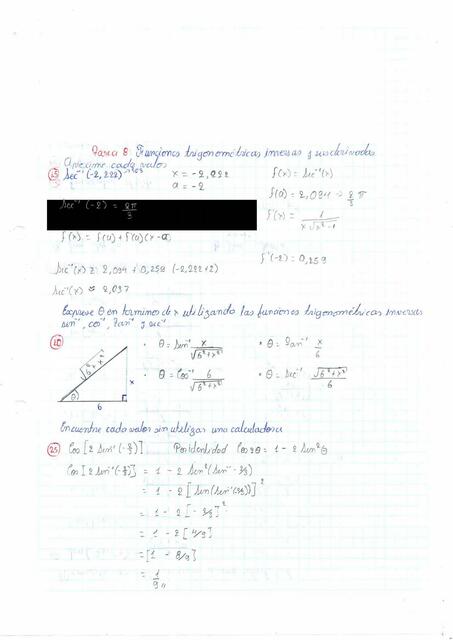 Tarea 8: Funciones trigonométricas inversas y sus derivadas
Aproxime cada valor
15 sec⁻¹(-2,222) x = -2,222 f(x) = sec⁻¹(x)
a = -2 f(a) = 2,094
sec⁻¹(-2) = 2π/3 f'(x) = 1/(x√(x²-1))
f(x) = f(a) + f'(a)(x-a)
f'(-2) = 0,259
sec⁻¹(x) ≈ 2,094 + 0,259 (-2,222+2)
sec⁻¹(x) ≈ 2,037
Exprese θ en termino de x utilizando las funciones trigonométricas inversas
sen⁻¹, cos⁻¹, tan⁻¹ y sec⁻¹
10 √(6²+x²) x θ 6
• θ = sen⁻¹ x/√(6²+x²) • θ = tan⁻¹ x/6
• θ = cos⁻¹ 6/√(6²+x²) • θ = sec⁻¹ √(6²+x²)/6
Encuentre cada valor sin utilizar una calculadora
25 Cos[2 sen⁻¹(-2/3)] Por identidad Cos 2θ = 1 - 2 sen²θ
Cos[2 sen⁻¹(-2/3)] = 1 - 2 sen²(sen⁻¹ -2/3)
= 1 - 2[sen(sen⁻¹(-2/3))]²
= 1 - 2[-2/3]²
= 1 - 2[4/9]
= [1 - 8/9]
= 1/9